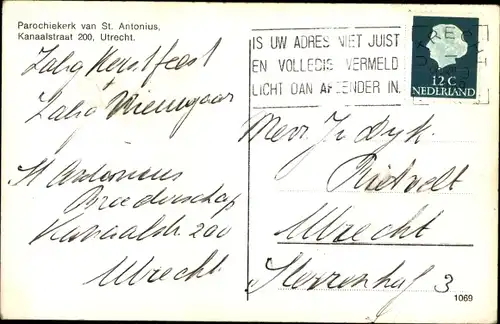 Parochiekerk van St. Antonius,
Kanaalstraat 200, Utrecht.
Zalig Kerstfeest
+
Zalig Nieuwjaar
St Antonius
Broederschap
Kanaalstr. 200
Utrecht
UTRECHT
IS UW ADRES NIET JUIST
EN VOLLEDIG VERMELD
LICHT DAN AFZENDER IN.
12 C
NEDERLAND
Mevr. Dyk.
Rietvelt
Utrecht
3
1069